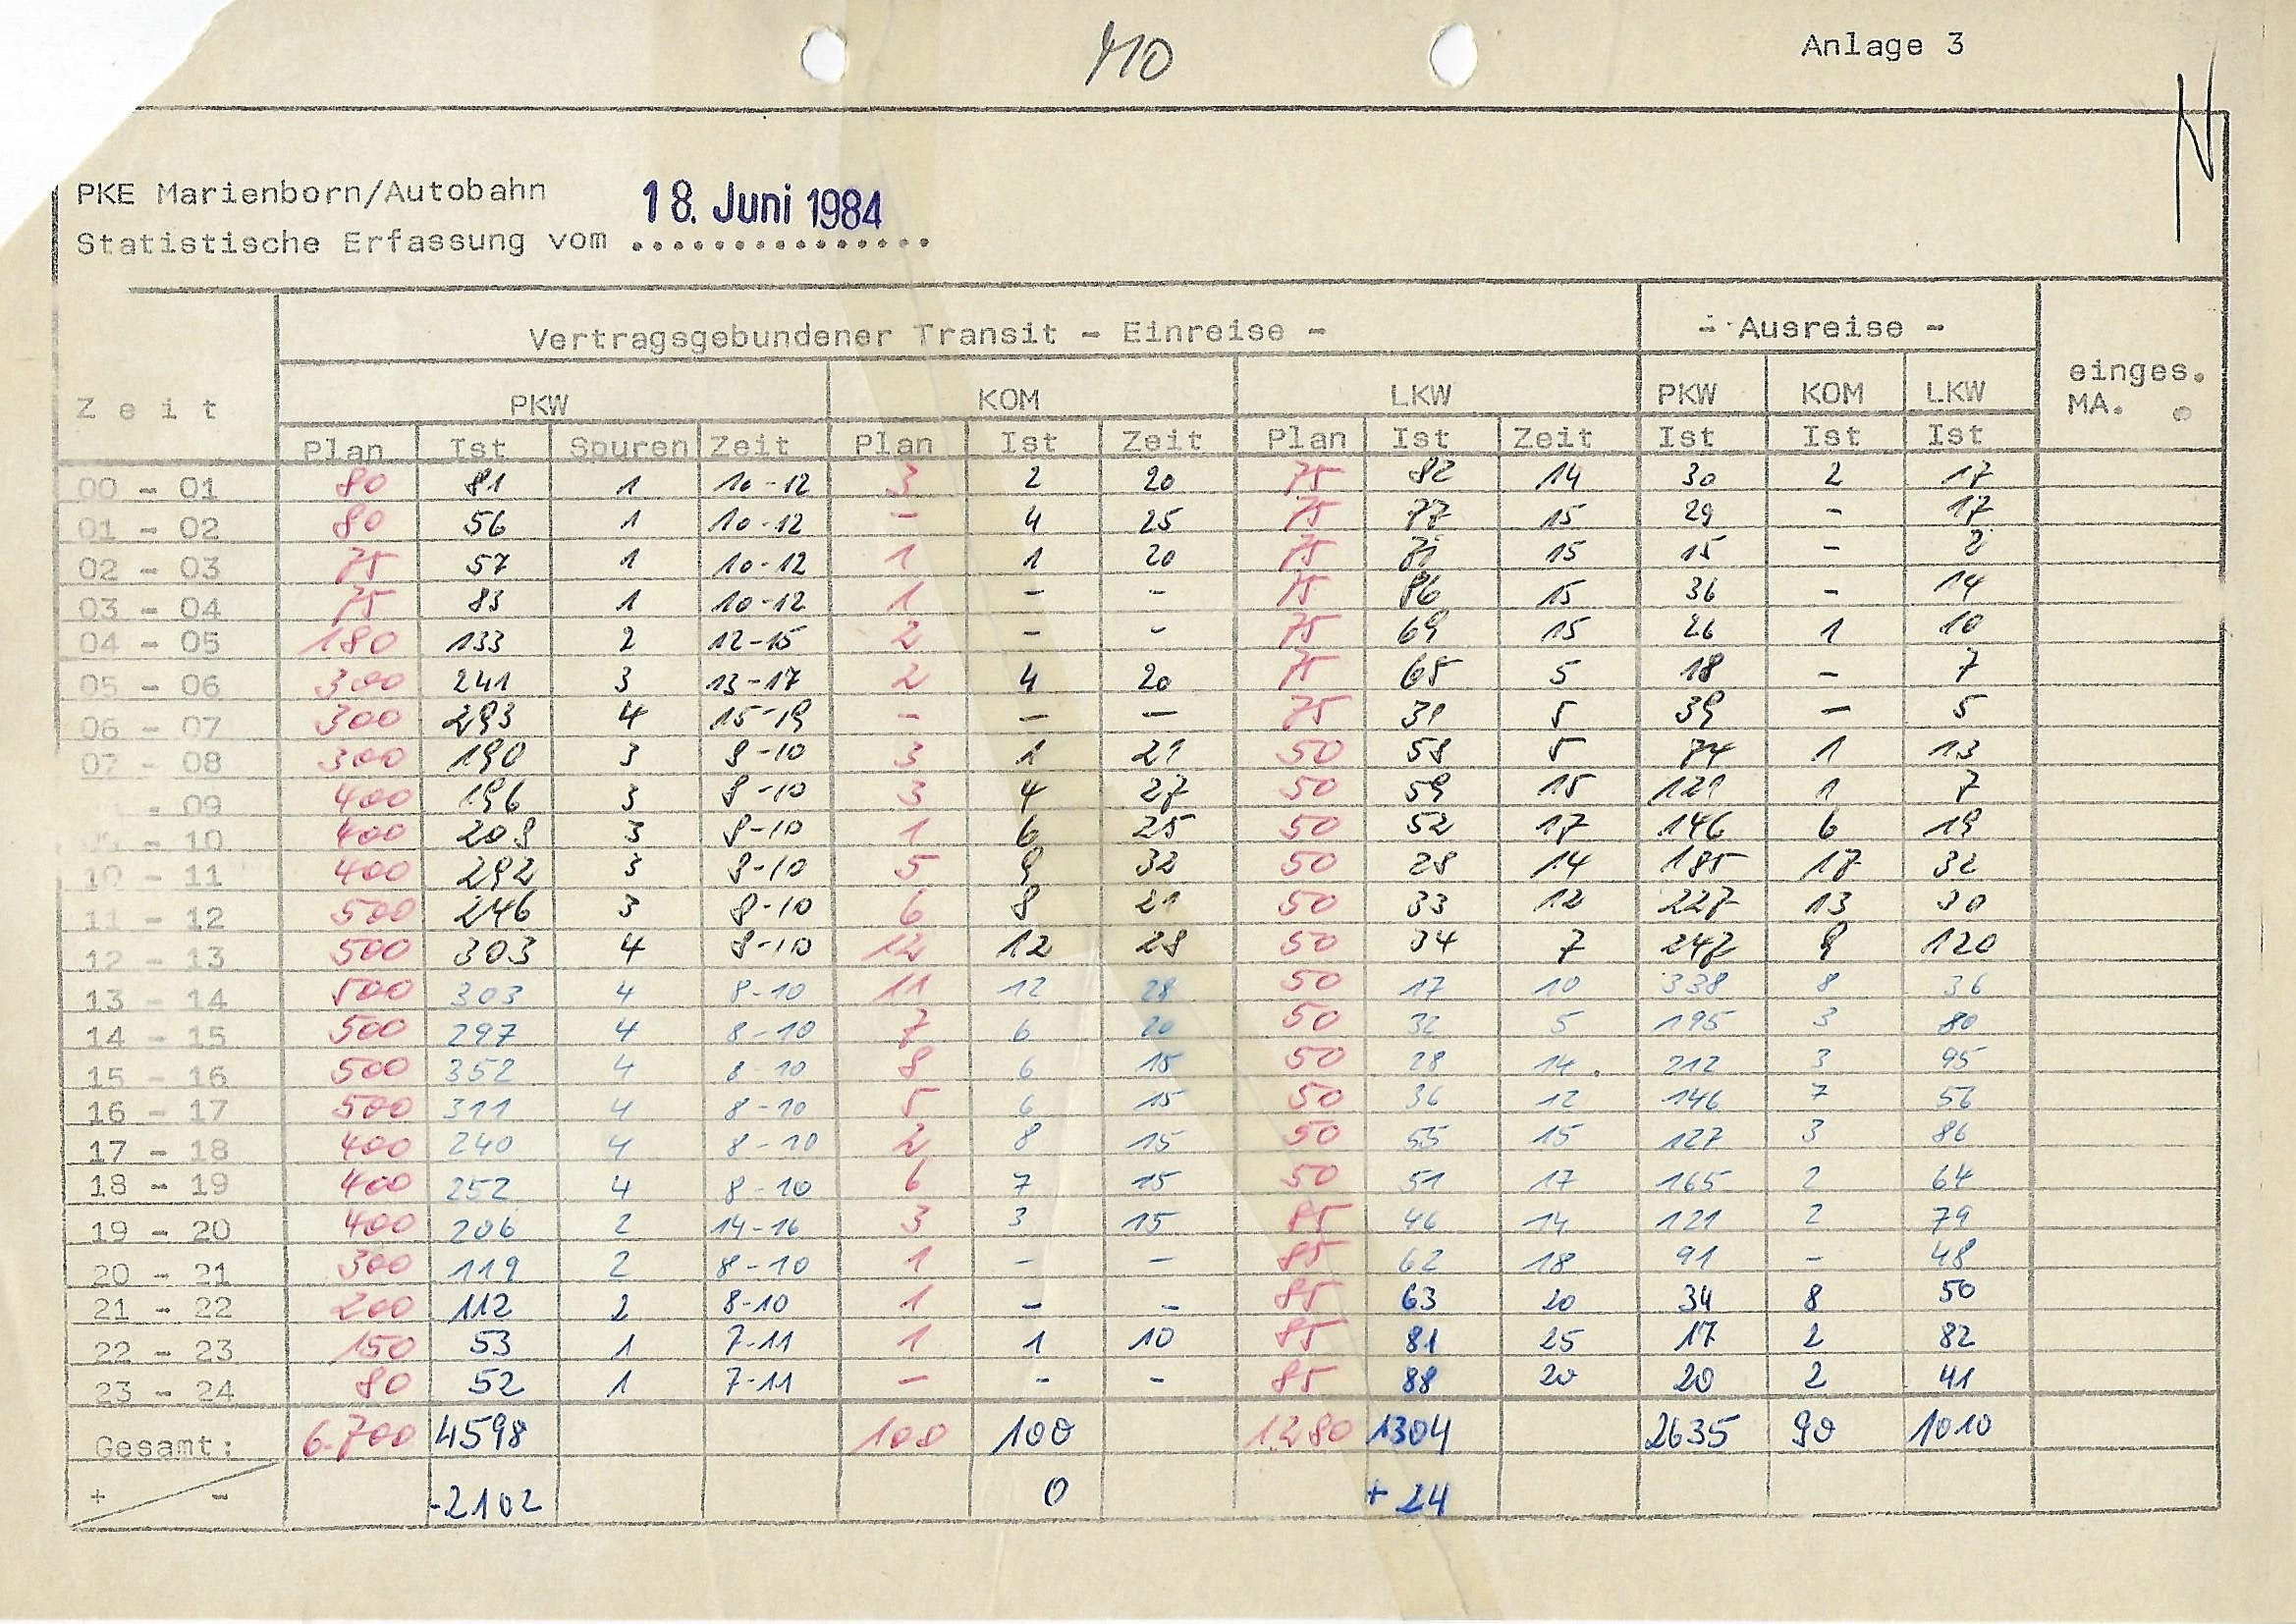 MO
Anlage 3
PKE Marienborn/Autobahn 18. Juni 1984
Statistische Erfassung vom ...............
Vertragsgebundener Transit - Einreise - - Ausreise -
Zeit PKW KOM LKW PKW KOM LKW einges. MA.
Plan Ist Spuren Zeit Plan Ist Zeit Plan Ist Zeit Ist Ist Ist
00 - 01 80 81 1 10-12 3 2 20 75 82 14 30 2 17
01 - 02 80 56 1 10-12 - 4 25 75 77 15 29 - 17
02 - 03 75 57 1 10-12 1 1 20 75 15 15 - 2
03 - 04 75 83 1 10-12 1 - - 75 86 15 36 - 14
04 - 05 180 133 2 12-15 2 - - 75 69 15 26 1 10
05 - 06 300 241 3 13-17 2 4 20 75 65 5 18 - 7
06 - 07 300 293 4 15-19 - - - 75 31 5 39 - 5
07 - 08 300 190 3 8-10 3 1 21 50 58 5 74 1 13
- 09 400 196 3 8-10 3 4 27 50 59 15 121 1 7
- 10 400 208 3 8-10 1 6 25 50 52 17 146 6 19
10 - 11 400 292 3 8-10 5 9 32 50 28 14 185 17 32
11 - 12 500 246 3 8-10 6 8 21 50 33 12 227 13 30
12 - 13 500 303 4 8-10 12 12 28 50 34 7 242 9 120
13 - 14 500 303 4 8-10 11 12 28 50 17 10 338 8 36
14 - 15 500 297 4 8-10 7 6 20 50 32 5 195 3 80
15 - 16 500 352 4 8-10 8 6 15 50 28 14. 212 3 95
16 - 17 500 311 4 8-10 5 6 15 50 36 12 146 7 56
17 - 18 400 240 4 8-10 2 8 15 50 55 15 127 3 86
18 - 19 400 252 4 8-10 6 7 15 50 51 17 165 2 64
19 - 20 400 206 2 14-16 3 3 15 85 46 14 121 2 79
20 - 21 300 119 2 8-10 1 - - 85 62 18 91 - 48
21 - 22 200 112 2 8-10 1 - - 85 63 20 34 8 50
22 - 23 150 53 1 7-11 1 1 10 85 81 25 17 2 82
23 - 24 80 52 1 7-11 - - - 85 88 20 20 2 41
Gesamt: 6.700 4598 100 100 1280 1304 2635 90 1010
+ - -2102 0 + 24